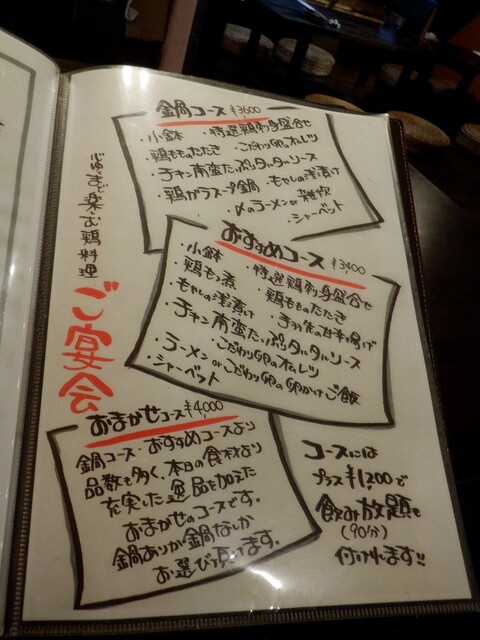 鍋コース ¥3600
・小鉢 ・特選鶏刺身盛合せ
・鶏もものたたき ・こだわり卵のオムレツ
・チキン南蛮たっぷりタルタルソース
・鶏ガラスープ鍋 ・もやしの浅漬け
・〆のラーメンor雑炊
・シャーベット
おすすめコース ¥3400
・小鉢 ・特選鶏刺身盛合せ
・鶏もつ煮 ・鶏もものたたき
・もやしの浅漬け ・手羽先の甘辛揚げ
・チキン南蛮たっぷりタルタルソース
・こだわり卵のオムレツ
・ラーメンorこだわり卵の卵かけご飯
・シャーベット
おまかせコース ¥4,000
鍋コース・おすすめコースより
品数も多く、本日の食材より
充実した逸品を加えた
おまかせのコースです。
鍋ありか鍋なしか
お選び頂けます。
コースには
プラス¥1200で
飲み放題も
(90分)
付けれます!!
まで楽しむ鶏料理
ご宴会